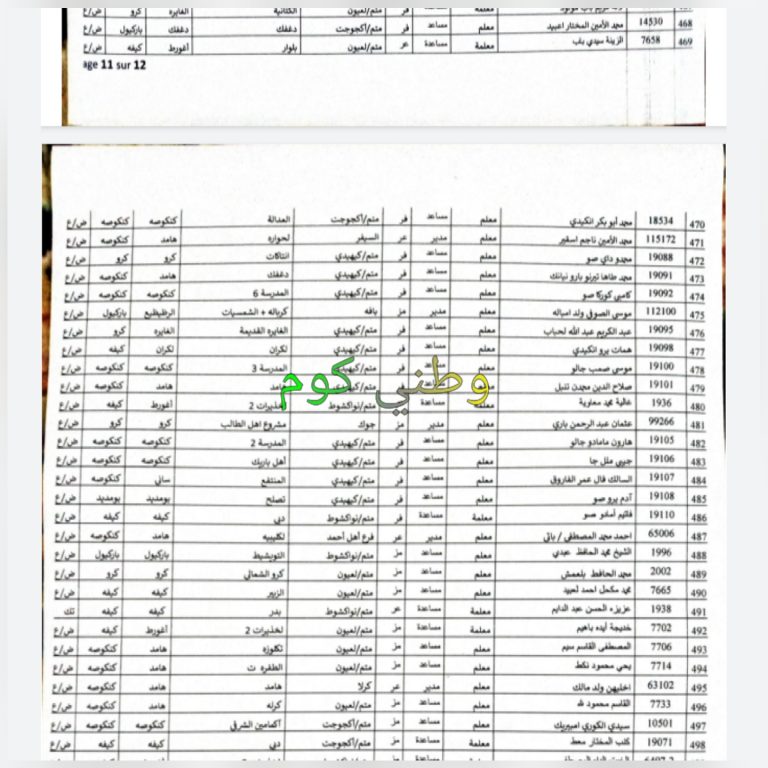 468 14530 محمد الأمين المختار اعبيد معلم مساعد فر متم/أكجوجت دغفك دغفك باركيول ض/ع
469 7658 الزينة سيدي باب معلمة مساعدة عر متم/لعيون بلوار أغورط كيفه ض/ع
age 11 sur 12
470 18534 محمد أبو بكر انكيدي معلم مساعد فر متم/أكجوجت العدالة كنكوصه كنكوصه ض/ع
471 115172 محمد الأمين ناجم اسغير معلم مدير عر السيفر لحواره هامد كنكوصه ض/ع
472 19088 محمدو داي صو معلم مساعد فر متم/كيهيدي انتاكات كرو كرو ض/ع
473 19091 محمد طاها تيرنو بارو نيانك معلم مساعد فر متم/كيهيدي دغفك هامد كنكوصه ض/ع
474 19092 كامبي كوركا صو معلم مساعد فر متم/كيهيدي المدرسة 6 كنكوصه كنكوصه ض/ع
475 112100 موسى الصوفي ولد امباله معلم مدير مز بافه كرباله + الشمسيات الرظيظيع باركيول ض/ع
476 19095 عبد الكريم عبد الله لحباب معلم مساعد فر متم/كيهيدي الغايره القديمة الغايره كرو ض/ع
477 19098 همات برو انكيدي معلم مساعد فر متم/كيهيدي لكران لكران كيفه ض/ع
478 19100 موسى صمب جالو معلم مساعد فر متم/كيهيدي المدرسة 3 كنكوصه كنكوصه ض/ع
479 19101 صلاح الدين محمدن تنبل معلم مساعد فر متم/كيهيدي هامد هامد كنكوصه ض/ع
وطني كوم
480 1936 عالية محمد معاوية معلمة مساعدة متم/نواكشوط لخذيرات 2 أغورط كيفه ض/ع
481 99266 عثمان عبد الرحمن باري معلم مدير مز جوك مشروع اهل الطالب كرو كرو ض/ع
482 19105 هارون مامادو جالو معلم مساعد فر متم/كيهيدي المدرسة 2 كنكوصه كنكوصه ض/ع
483 19106 جيبي ملل جا معلم مساعد فر متم/كيهيدي أهل باريك كنكوصه كنكوصه ض/ع
484 19107 السالك فال عمر الفاروق معلم مساعد فر متم/كيهيدي المنتفع ساني كنكوصه ض/ع
485 19108 آدم يرو صو معلم مساعد فر متم/كيهيدي تصلح بومديد بومديد ض/ع
486 19110 فاتيم آمادو صو معلمة مساعدة فر متم/نواكشوط دبي كيفه كيفه ض/ع
487 65006 احمد محمد المصطفى / باتي معلم مدير عر فرع أهل أحمد لكليبيه هامد كنكوصه ض/ع
488 1996 الشيخ محمد الحافظ عبدي معلم مساعد مز متم/نواكشوط التويشيط باركيول باركيول ض/ع
489 2002 محمد الحافظ بلعمش معلم مساعد مز متم/لعيون كرو الشمالي كرو كرو ض/ع
490 7665 محمد مكحل احمد لعبيد معلم مساعد مز متم/لعيون الزبير كيفه كيفه ض/ع
491 1938 عزيزه الحسن عبد الدايم معلمة مساعدة عر متم/نواكشوط بدر كيفه كيفه تك
492 7702 خديجة أيده باهيم معلمة مساعدة مز متم/لعيون لخذيرات 2 أغورط كيفه ض/ع
493 7706 المصطفى القاسم سيم معلم مساعد مز متم/لعيون تكلوزه هامد كنكوصه ض/ع
494 7714 يحي محمود نكط معلم مساعد مز متم/لعيون الظفره ت هامد كنكوصه ض/ع
495 63102 اخليهن ولد مالك معلم مدير عر كرلا هامد هامد كنكوصه ض/ع
496 7733 القاسم محمود معلم مساعد مز متم/لعيون كرله هامد كنكوصه ض/ع
497 10501 سيدي الكوري امبيريك معلم مساعد مز متم/أكجوجت أكمامين الشرقي كنكوصه كنكوصه ض/ع
498 19071 كلب المختار معط معلمة مساعدة مز متم/أكجوجت دبي كيفه كيفه ض/ع